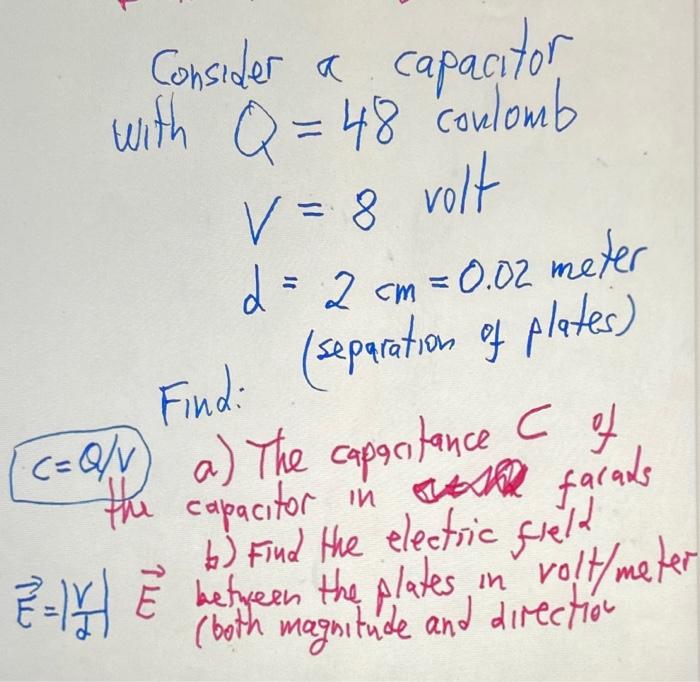 Consider a capacitor
with Q = 48 coulomb
V = 8 volt
d = 2 cm = 0.02 meter
(separation of plates)
Find:
C = Q/V
a) The capacitance C of
the capacitor in farads
b) Find the electric field
E⃗ = |V/d|
E⃗ between the plates in volt/meter
(both magnitude and direction